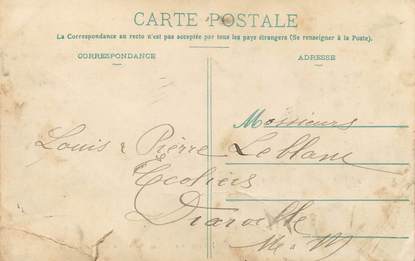 CARTE POSTALE
La Correspondance au recto n'est pas acceptée par tous les pays étrangers (Se renseigner à la Poste).
CORRESPONDANCE
ADRESSE
Messieurs
Louis & Pierre Leblanc
Ecoliers
M & M